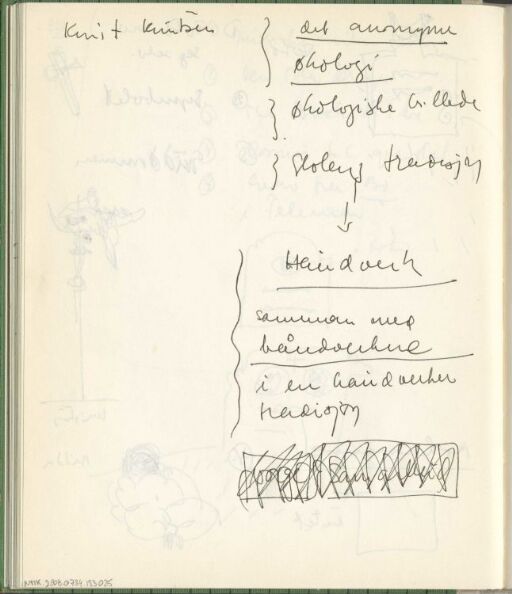 Knut Knutsen
det anonyme
økologi
økologiske billede
skolens tradisjon
Håndverk
sammen med
håndverkere
i en håndverker
tradisjon
NMK.2008.0734.153.025